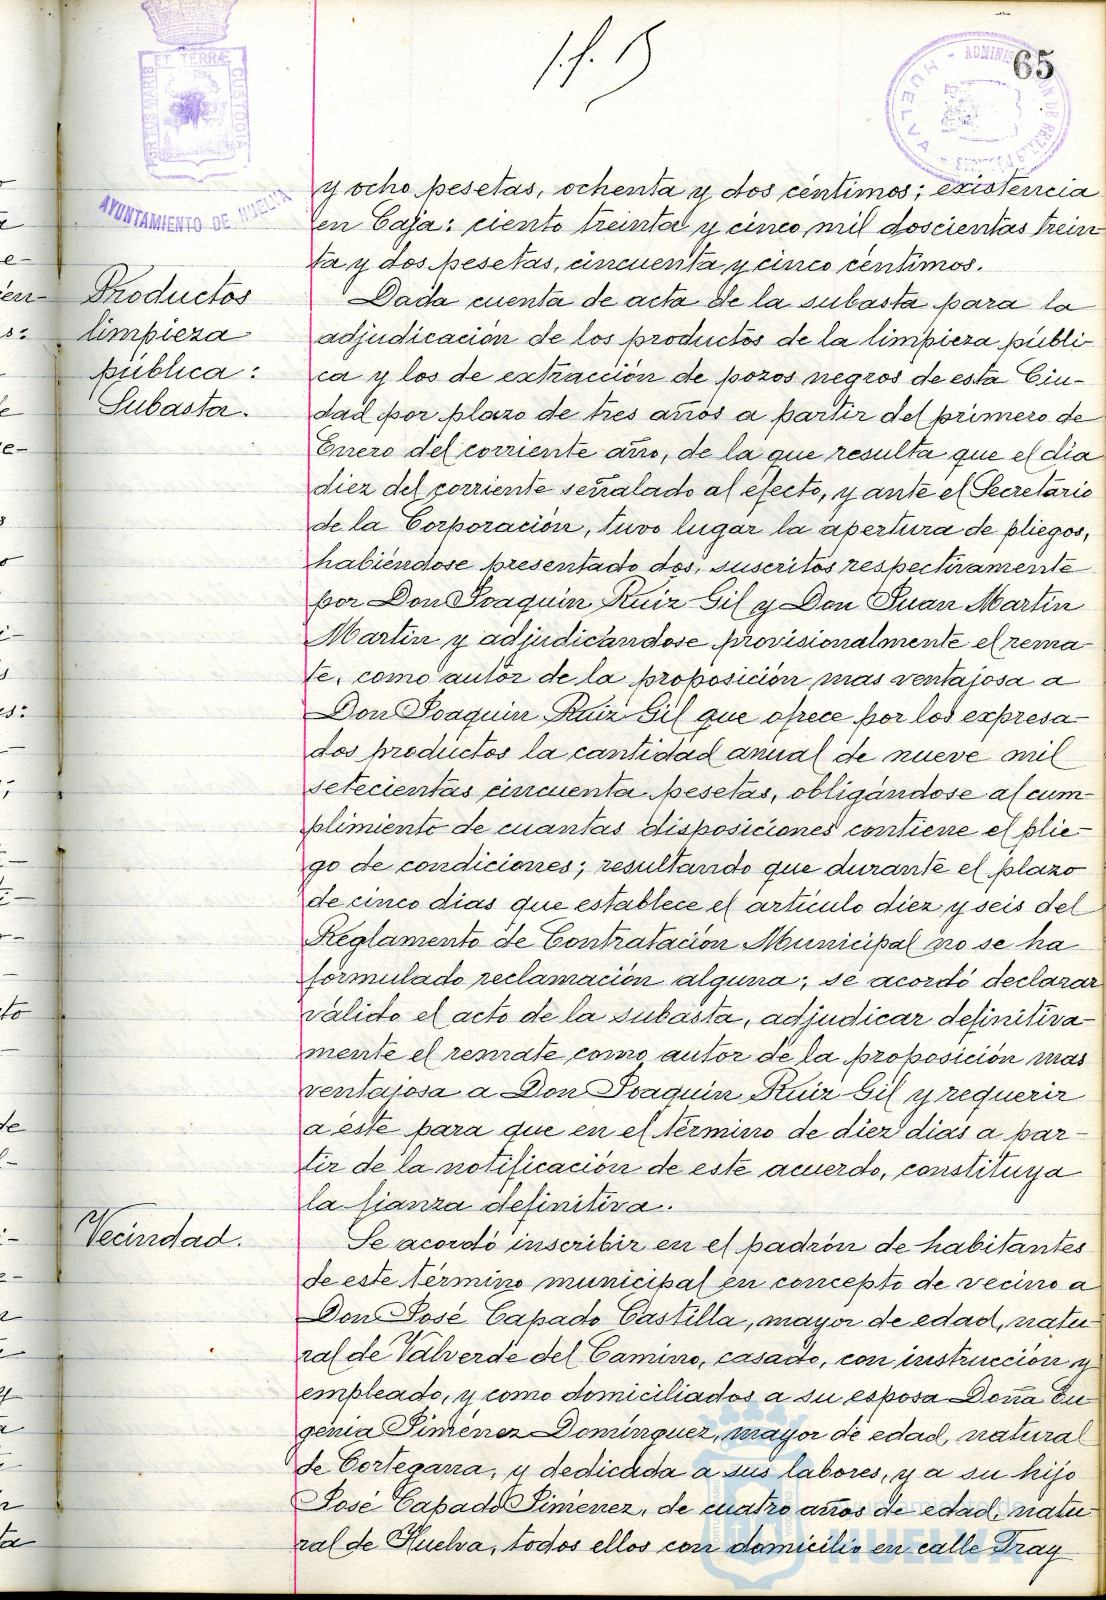 65
PORTUS MARIS ET TERRÆ CUSTODIA
AYUNTAMIENTO DE HUELVA
HUELVA
y ocho pesetas, ochenta y dos céntimos; existencia
en Caja: ciento treinta y cinco mil doscientas trein
ta y dos pesetas, cincuenta y cinco céntimos.
Productos
limpieza
pública:
Subasta.
Dada cuenta de acta de la subasta para la
adjudicación de los productos de la limpieza públi-
ca y los de extracción de pozos negros de esta Ciu-
dad por plazo de tres años a partir del primero de
Enero del corriente año, de la que resulta que el dia
diez del corriente señalado al efecto, y ante el Secretario
de la Corporación, tuvo lugar la apertura de pliegos,
habiéndose presentado dos, suscritos respectivamente
por Don Joaquin Ruiz Gil y Don Juan Martin
Martin y adjudicándose provisionalmente el rema-
te, como autor de la proposición mas ventajosa a
Don Joaquin Ruiz Gil que ofrece por los expresa-
dos productos la cantidad anual de nueve mil
setecientas cincuenta pesetas, obligándose al cum-
plimiento de cuantas disposiciones contiene el plie-
go de condiciones; resultando que durante el plazo
de cinco dias que establece el artículo diez y seis del
Reglamento de Contratación Municipal no se ha
formulado reclamación alguna; se acordó declarar
válido el acto de la subasta, adjudicar definitiva-
mente el remate como autor de la proposición mas
ventajosa a Don Joaquin Ruiz Gil y requerir
a éste para que en el término de diez dias a par-
tir de la notificación de este acuerdo, constituya
la fianza definitiva.
Vecindad.
Se acordó inscribir en el padrón de habitantes
de este término municipal en concepto de vecino a
Don José Capado Castilla, mayor de edad, natu-
ral de Valverde del Camino, casado, con instrucción y
empleado, y como domiciliados a su esposa Doña Eu-
genia Jiménez Domínguez, mayor de edad, natural
de Cortegana, y dedicada a sus labores, y a su hijo
José Capado Jimenez, de cuatro años de edad, natu-
ral de Huelva, todos ellos con domicilio en calle Fray